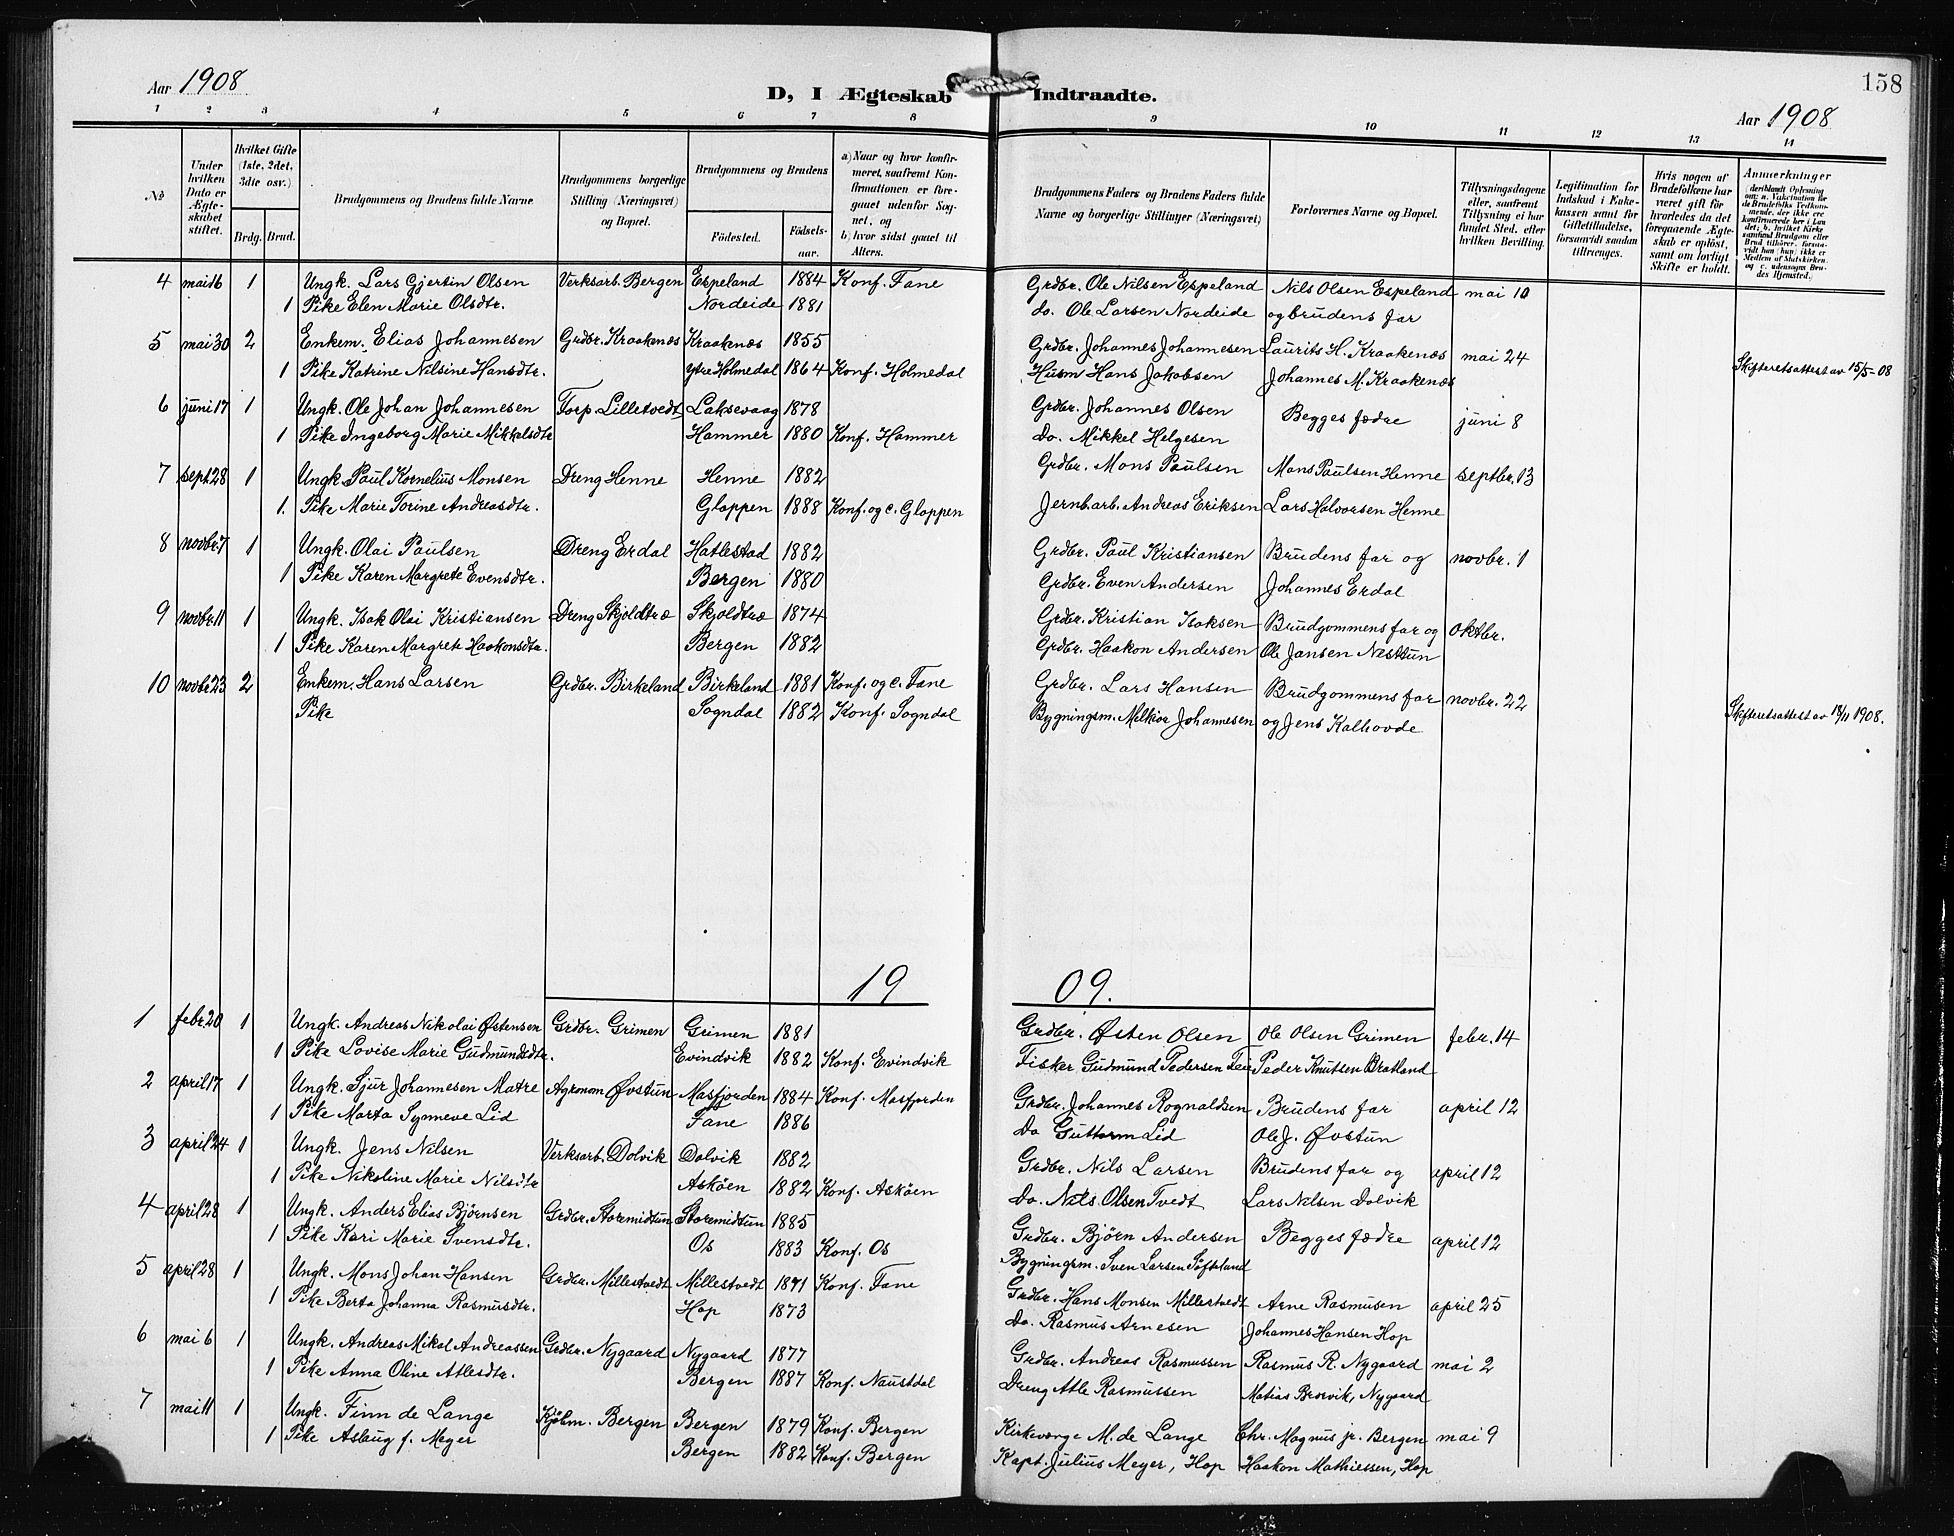 158
Aar 1908
D, I Ægteskab Indtraadte.
Aar 1908
1 2 3 4 5 6 7 8 9 10 11 12 13 14
No
Under hvilken Dato er Ægteskabet stiftet.
Hvilket Gifte (1ste, 2det, 3die osv.)
Brdg. Brud.
Brudgommens og Brudens fulde Navne
Brudgommens borgerlige Stilling (Næringsvei) og Bopæl.
Brudgommens og Brudens
Födested. Födselsaar.
a) Naar og hvor konfirmeret, saafremt Konfirmationen er foregaaet udenfor Sognet, og b) hvor sidst gaaet til Alters.
Brudgommens Faders og Brudens Faders fulde Navne og borgerlige Stillinger (Næringsvei)
Forlovernes Navne og Bopæl.
Tillysningsdagene eller, saafremt Tillysning ei har fundet Sted, efter hvilken Bevilling.
Legitimation for Indskud i Enkekassen samt for Giftetilladelse, forsaavidt saadan tiltrænges.
Hvis nogen af Brudefolkene har været gift för hvorledes da det foregaaende Ægteskab er oplöst, samt om lovligt Skifte er holdt.
Anmærkninger (deriblandt Oplysning om: a. Vakcination for de Brudefolks Vedkommende, der ikke ere konfirmerede her i Landet; b. hvilket Kirkesamfund Brudgom eller Brud tilhörer, forsaavidt han (hun) ikke er Medlem af Statskirken, og c. udensogns Brudes Hjemsted.)
4 mai 16 1 Ungk. Lars Gjertin Olsen Verksarb. Bergen Espeland 1884 Konf. Fane Grdbr. Ole Nilsen Espeland Nils Olsen Espeland mai 10
1 Pike Elen Marie Olsdtr. Nordeide 1881 do. Ole Larsen Nordeide og brudens far
5 mai 30 2 Enkem. Elias Johannesen Grdbr. Kraakenæs Kraakenæs 1855 Grdbr. Johannes Johannesen Laurits H. Kraakenæs mai 24
1 Pike Katrine Nilsine Hansdtr. Ytre Holmedal 1864 Konf. Holmedal Husm Hans Jakobsen Johannes M. Kraakenæs Skifteretsattest av 15/5-08
6 juni 17 1 Ungk. Ole Johan Johannesen Torp. Lilletvedt Laksevaag 1878 Grdbr. Johannes Olsen Begges fædre juni 8
1 Pike Ingeborg Marie Mikkelsdtr Hammer 1880 Konf. Hammer Do. Mikkel Helgesen
7 sept. 28 1 Ungk. Paul Kornelius Monsen Dreng Henne Henne 1882 Grdbr. Mons Paulsen Mons Paulsen Henne septbr. 13
1. Pike Marie Torine Andreasdtr. Gloppen 1888 Konf. og c. Gloppen Jernb.arb. Andreas Eriksen Lars Halvorsen Henne
8 novbr. 7 1 Ungk. Olai Paulsen Dreng Erdal Hatlestad 1882 Grdbr. Paul Kristiansen Brudens far og novbr. 1
1 Pike Karen Margrete Evensdtr. Bergen 1880 Grdbr. Even Andersen Johannes Erdal
9 novbr. 11 1 Ungk. Isak Olai Kristiansen Dreng Skjoldtræ Skjoldtræ 1874 Grdbr. Kristian Isaksen Brudgommens far og oktbr.
1 Pike Karen Margrete Haakonsdtr. Bergen 1882 Grdbr. Haakon Andersen Ole Jansen Nesttun
10 novbr 23 2 Enkem. Hans Larsen Grdbr. Birkeland Birkeland 1881 Konf. og c. Fane Grdbr. Lars Hansen Brudgommens far novbr. 22
Pike Sogndal 1882 Konf. Sogndal Bygningsm. Melkior Johannesen og Jens Kalhovde Skifteretsattest av 18/11 1908.
19 09.
1 febr. 20 1 Ungk. Andreas Nikolai Østensen Grdbr. Grimen Grimen 1881 Grdbr. Østen Olsen Ole Olsen Grimen febr. 14
1 Pike Lovise Marie Gudmundsdtr. Evindvik 1882 Konf. Evindvik Fisker Gudmund Pedersen Peder Knutsen Bratland
2 april 17 1 Ungk. Sjur Johannesen Matre Agronom Øvstun Masfjorden 1884 Konf. Masfjorden Grdbr. Johannes Rognaldsen Brudens far april 12
1 Pike Marta Synneve Lid Fane 1886 Do Guttorm Lid Ole J. Øvstun
3 april 24 1 Ungk. Jens Nilsen Verksarb. Dolvik Dolvik 1882 Grdbr. Nils Larsen Brudens far og april 12
1 Pike Nikoline Marie Nilsdtr Asköen 1882 Konf. Asköen Do. Nils Olsen Tvedt Lars Nilsen Dolvik
4 april 28 1 Ungk. Anders Elias Bjørnsen Grdbr. Storemidtun Storemidtun 1885 Grdbr. Bjørn Andersen Begges fædre april 12
1 Pike Kari Marie Svensdtr. Os 1883 Konf. Os Bygningsm. Sven Larsen Söfteland
5 april 28 1 Ungk. Mons Johan Hansen Grdbr. Millestvedt Millestvedt 1871 Konf. Fane Grdbr. Hans Monsen Millestvedt Arne Rasmusen april 25
1 Pike Berta Johanna Rasmusdtr. Hop 1873 Do. Rasmus Arnesen Johannes Hansen Hop
6 mai 6 1 Ungk. Andreas Mikal Andreassen Grdbr. Nygaard Nygaard 1877 Grdbr. Andreas Rasmussen Rasmus R. Nygaard mai 2
1 Pike Anna Oline Atlesdtr. Bergen 1887 Konf. Naustdal Dreng Atle Rasmussen Matias Brosvik, Nygaard
7 mai 11 1 Ungk. Finn de Lange Kjöbm. Bergen Bergen 1879 Konf. Bergen Kirkeverge M. de Lange Chr. Magnus jr. Bergen mai 9
1 Pike Aslaug f. Meyer Bergen 1882 Konf. Bergen Kapt. Julius Meyer, Hop Haakon Mathiessen, Hop